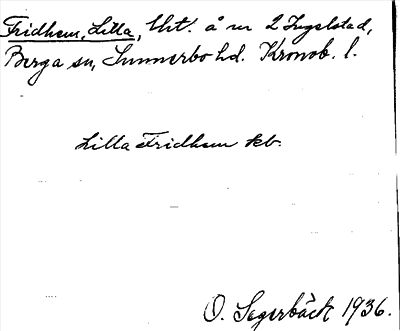 Fridhem, Lilla, lht. å nr 2 Ingelstad,
Berga sn, Sunnerbo hd. Kronob. l.
Lilla Fridhem kb.
O. Segerbäck 1936.